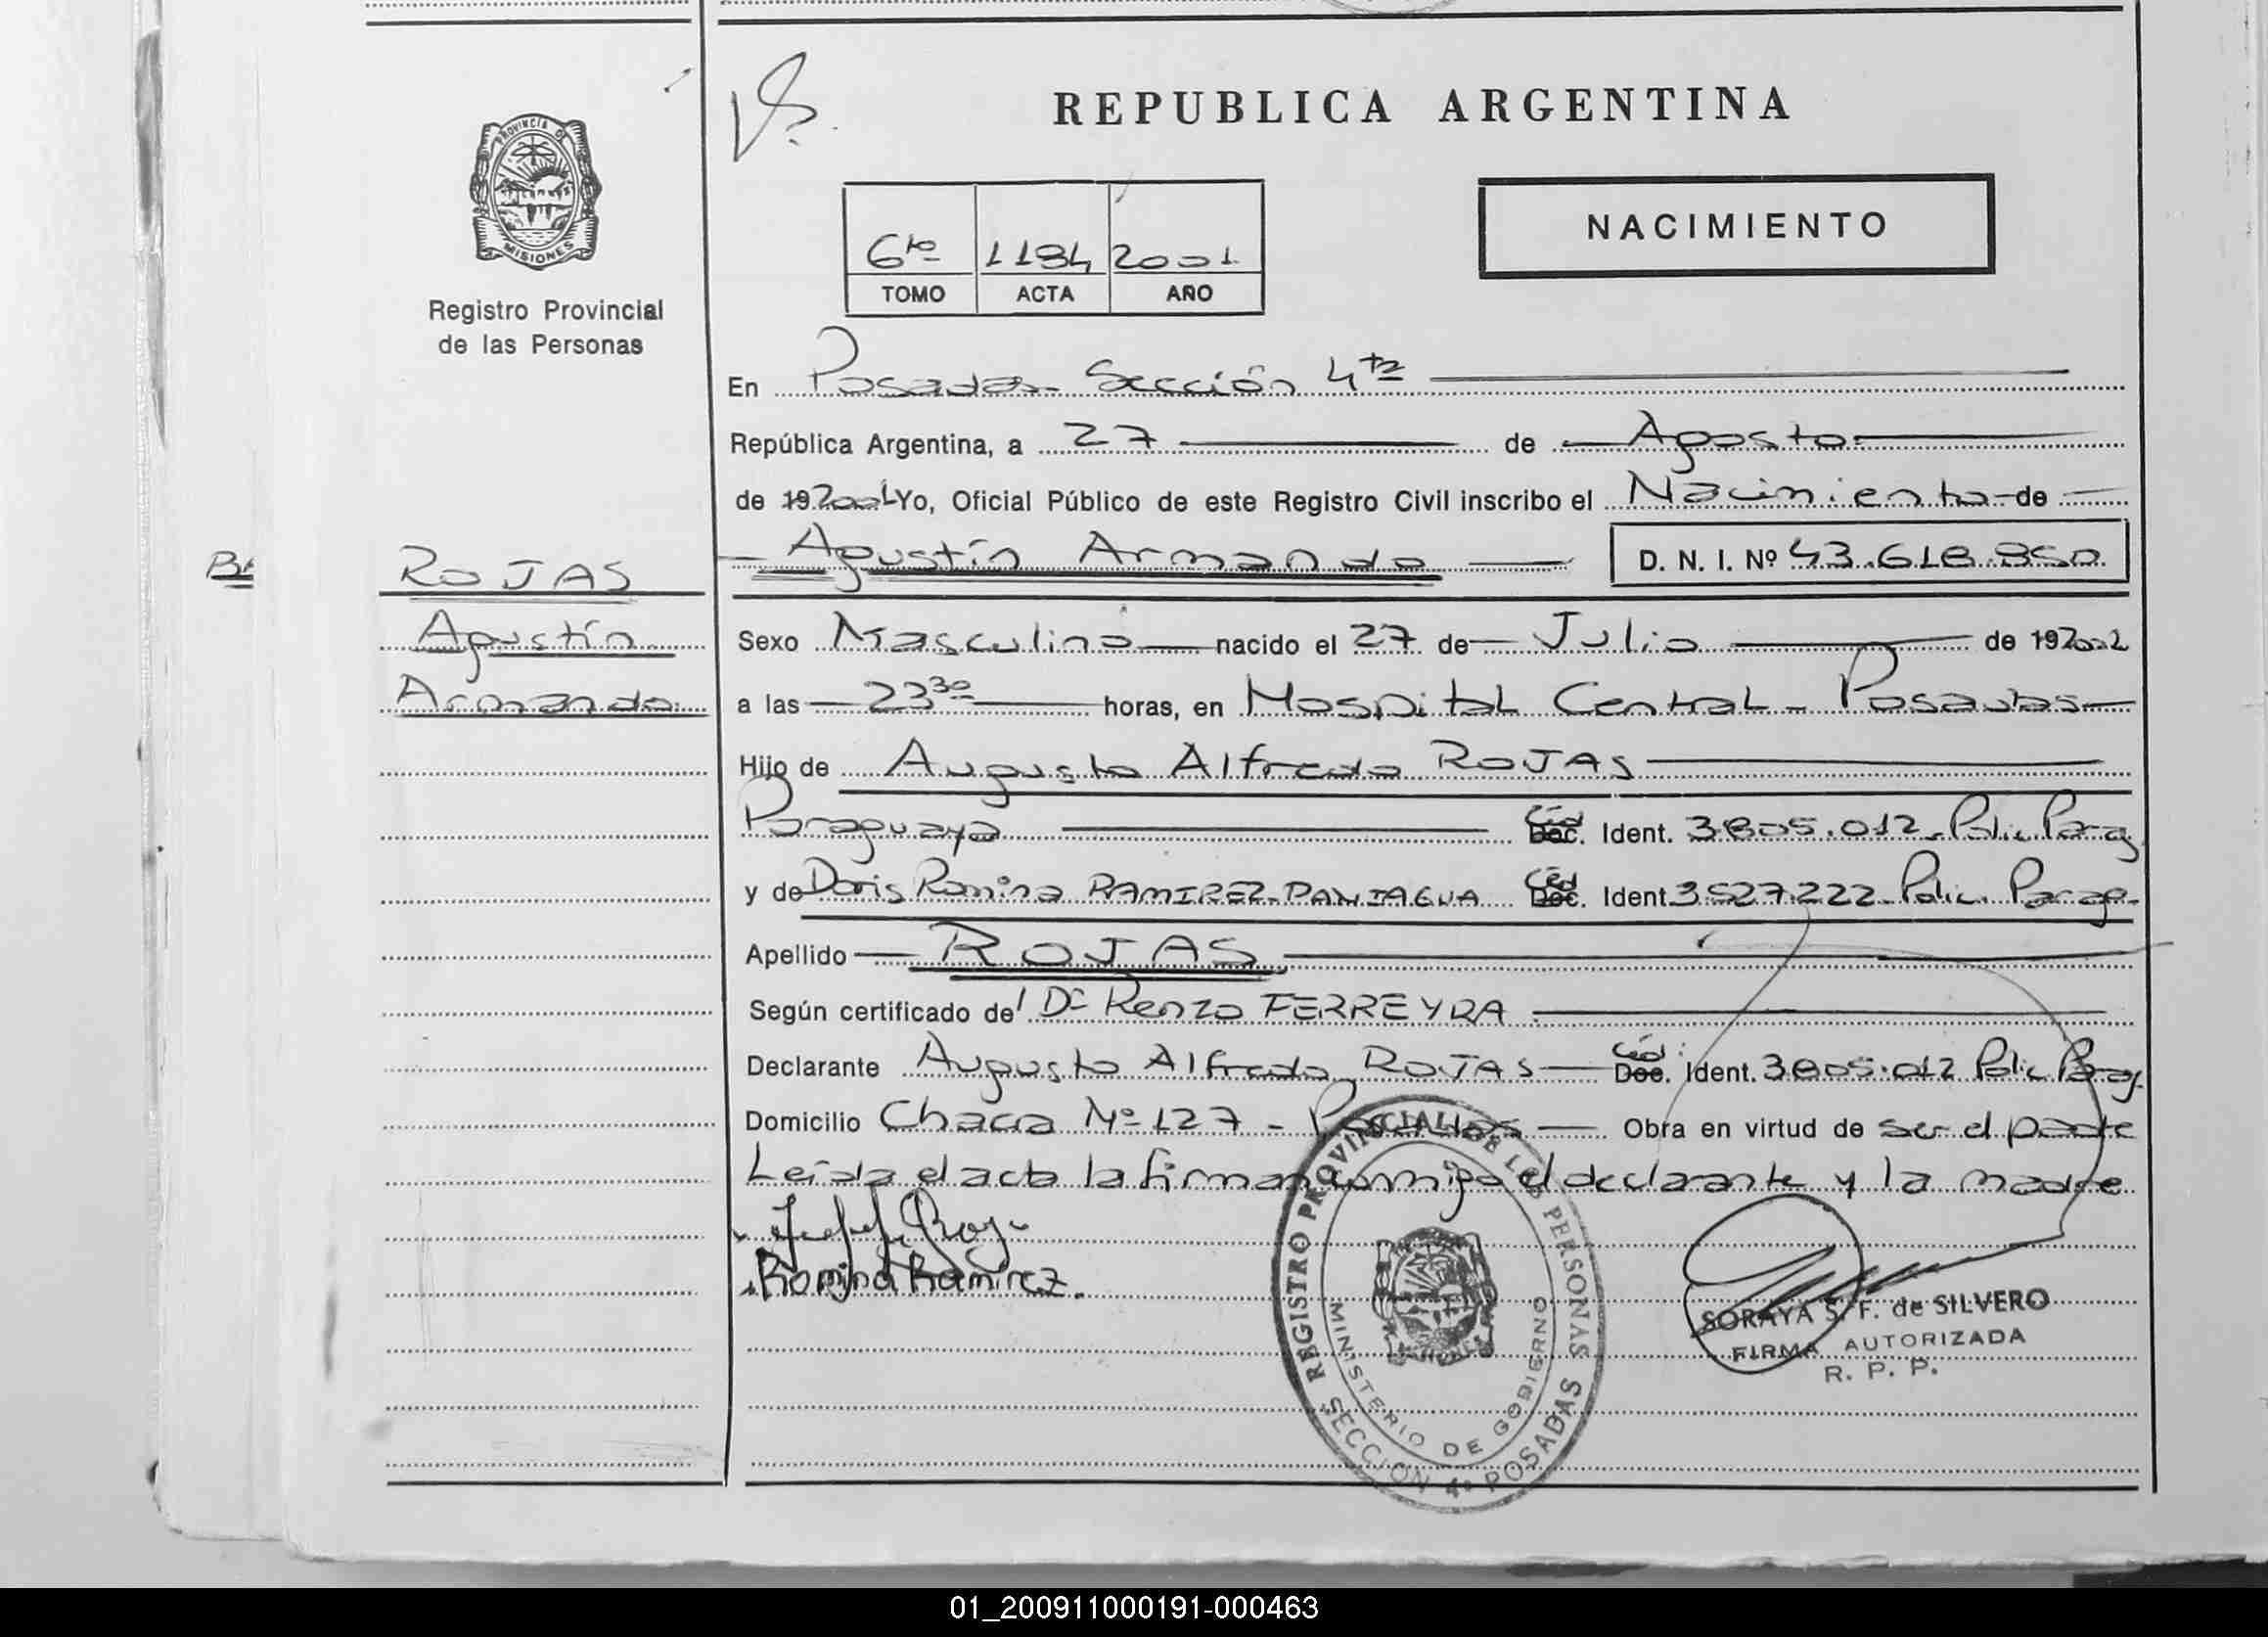 PROVINCIA DE
MISIONES
Registro Provincial
de las Personas
REPUBLICA ARGENTINA
NACIMIENTO
6to 1194 2001
TOMO ACTA AÑO
En Posadas Sección 4ta
República Argentina, a 27 de Agosto
de 192001 Yo, Oficial Público de este Registro Civil inscribo el Nacimiento de
ROJAS
Agustín
Armando
Agustín Armando D. N. I. Nº 43.618.950
Sexo Masculino nacido el 27 de Julio de 192001
a las 23 30 horas, en Hospital Central - Posadas
Hijo de Augusto Alfredo ROJAS
Paraguaya Céd Doc. Ident. 3805.012 Polic. Parag
y de Doris Romina RAMIREZ PANIAGUA Céd Doc. Ident. 3527.222 Polic. Parag.
Apellido ROJAS
Según certificado de l Dr Renzo FERREYRA
Declarante Augusto Alfredo ROJAS Céd. Doc. Ident. 3805.012 Polic Parag.
Domicilio Chacra Nº 127 - Posadas Obra en virtud de ser el padre
Leída el acta la firman conmigo el declarante y la madre
Romina Ramirez.
REGISTRO PROVINCIAL DE LAS PERSONAS
MINISTERIO DE GOBIERNO
SECCION 4a POSADAS
SORAYA S. F. de SILVERO
FIRMA AUTORIZADA
R. P. P.
01_200911000191-000463